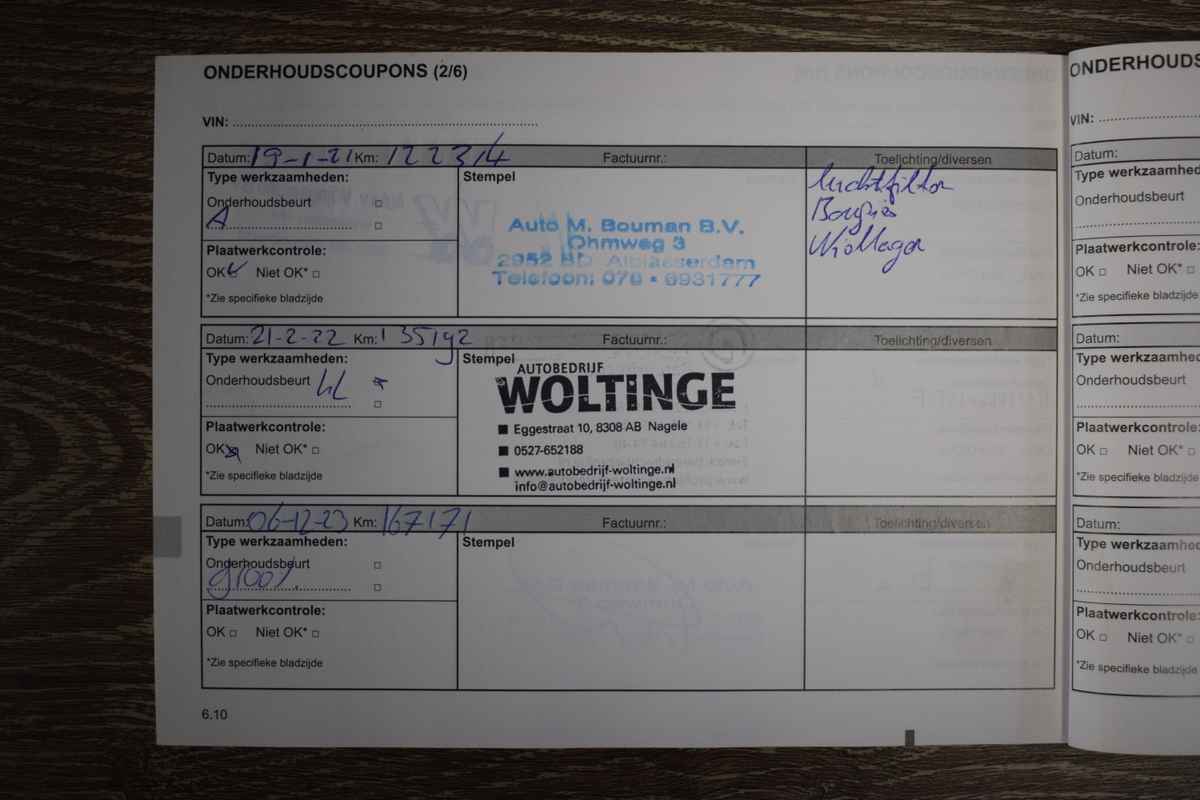 ONDERHOUDSCOUPONS (2/6)
VIN:
Datum: 19-1-21 Km: 122314 Factuurnr.: Toelichting/diversen
Type werkzaamheden:
Onderhoudsbeurt
A
Plaatwerkcontrole:
OK Niet OK*
*Zie specifieke bladzijde
Stempel
Auto M. Bouman B.V.
Ohmweg 3
2952 BD Alblasserdam
Telefoon: 078 • 6931777
luchtfilter
Bougies
Datum: 21-2-22 Km: 135192 Factuurnr.: Toelichting/diversen
Type werkzaamheden:
Onderhoudsbeurt
Plaatwerkcontrole:
OK Niet OK*
*Zie specifieke bladzijde
Stempel
AUTOBEDRIJF
WOLTINGE
Eggestraat 10, 8308 AB Nagele
0527-652188
www.autobedrijf-woltinge.nl
info@autobedrijf-woltinge.nl
Datum: 06-12-23 Km: 167171 Factuurnr.: Toelichting/diversen
Type werkzaamheden:
Onderhoudsbeurt
groot
Plaatwerkcontrole:
OK Niet OK*
*Zie specifieke bladzijde
Stempel
6.10
ONDERHOUDS
VIN:
Datum:
Type werkzaamhed
Onderhoudsbeurt
Plaatwerkcontrole:
OK Niet OK*
*Zie specifieke bladzijde
Datum:
Type werkzaamhe
Onderhoudsbeurt
Plaatwerkcontrole:
OK Niet OK*
*Zie specifieke bladzijde
Datum:
Type werkzaamhe
Onderhoudsbeurt
Plaatwerkcontrole:
OK Niet OK*
*Zie specifieke bladzijde